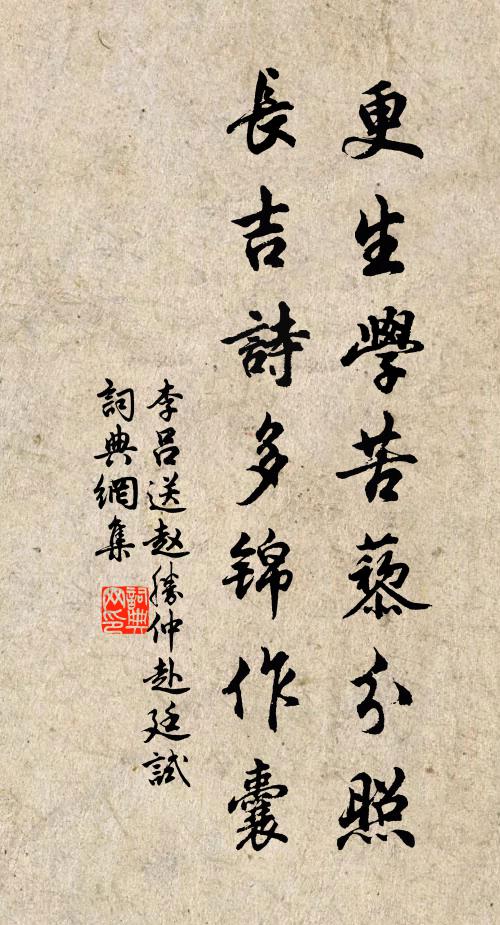 更生學苦藜分照
長吉詩多錦作囊
李呂送赵勝仲赴廷試
詞典網集
詞典网印